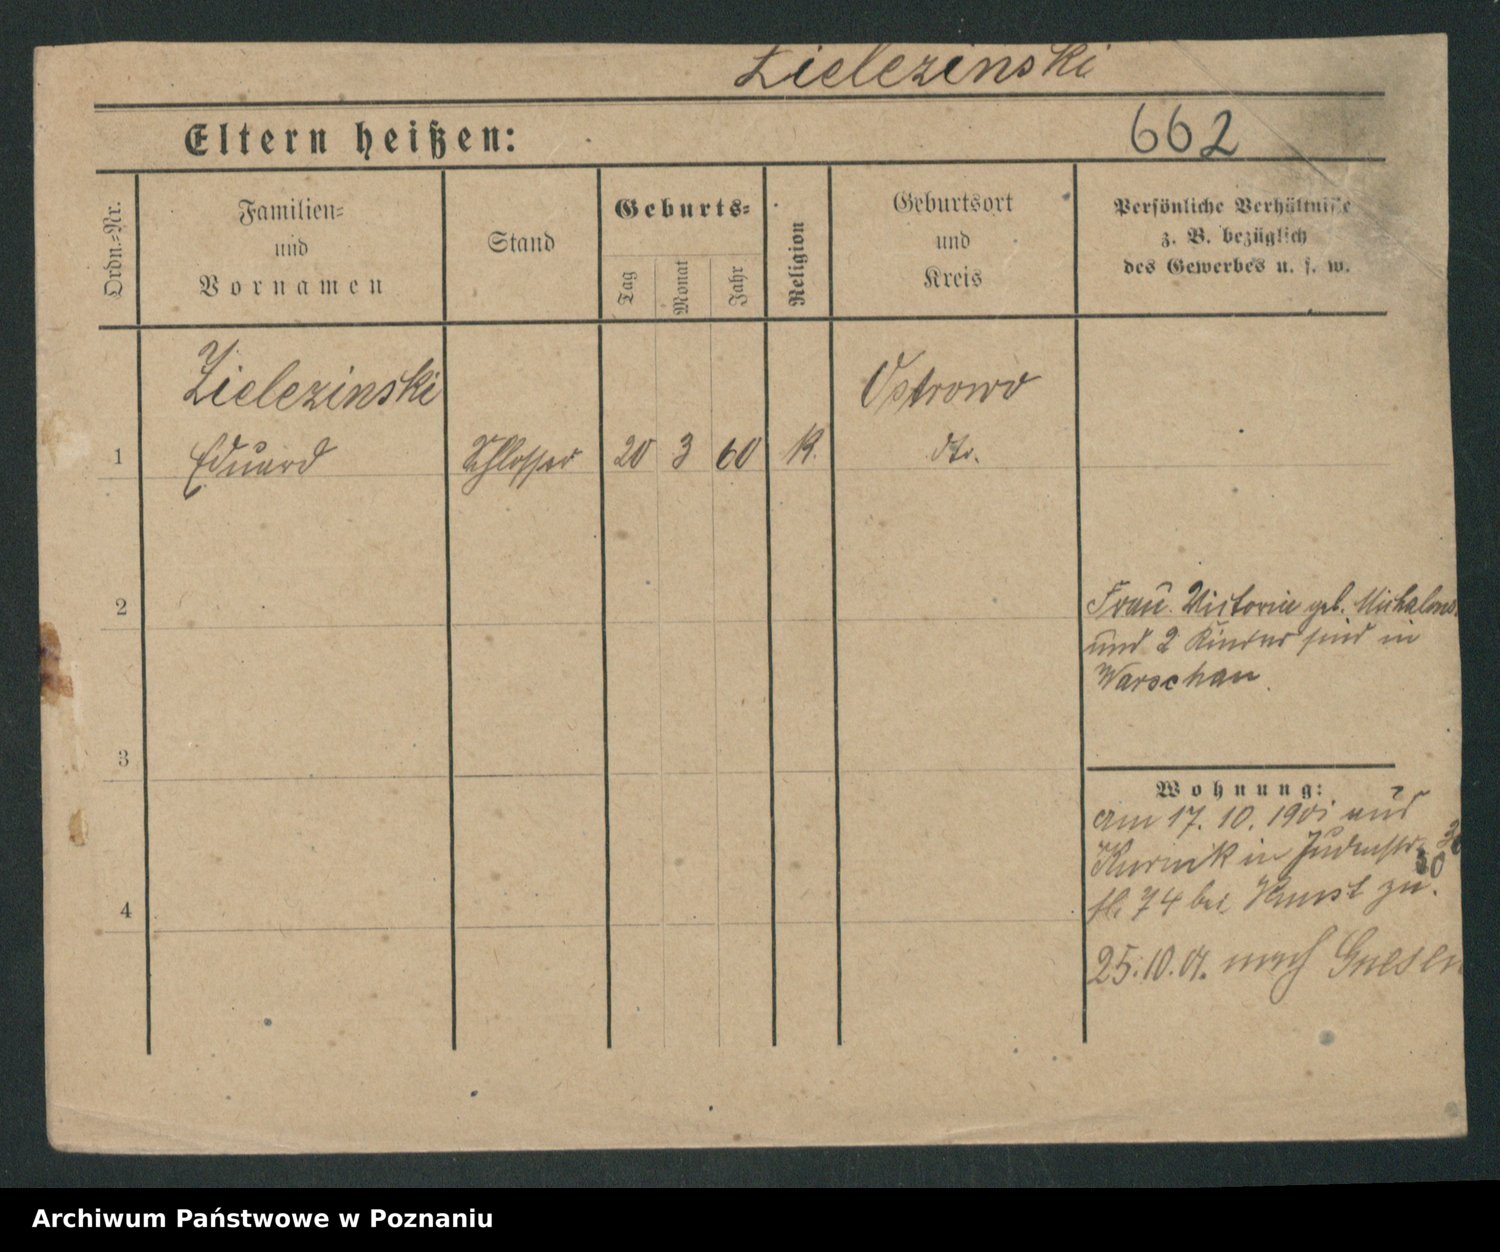 Zielezinski
Eltern heißen:
662
Ordn.-Nr.
Familien-
und
Vornamen
Stand
Geburts-
Tag
Monat
Jahr
Religion
Geburtsort
und
Kreis
Persönliche Verhältnisse
z. B. bezüglich
des Gewerbes u. s. w.
Zielezinski
Ostrowo
1
Eduard
Schlosser
20
3
60
K.
dto.
2
Frau Victoria geb.
und 2 Kinder sind in
Warschau
3
Wohnung:
am 17. 10. 1901 aus
Kurnik in Judenstr.
30
bei Kunst zu.
4
25.10.01. nach Gnesen
Archiwum Państwowe w Poznaniu